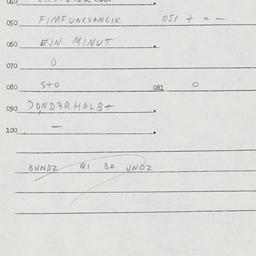 040
050 FIMFUNCVANCIK 051 + = -
060 EJN MINUT
070 0
080 S+O 081 0
090
100 —
BUNDZ QI BA UNDZ